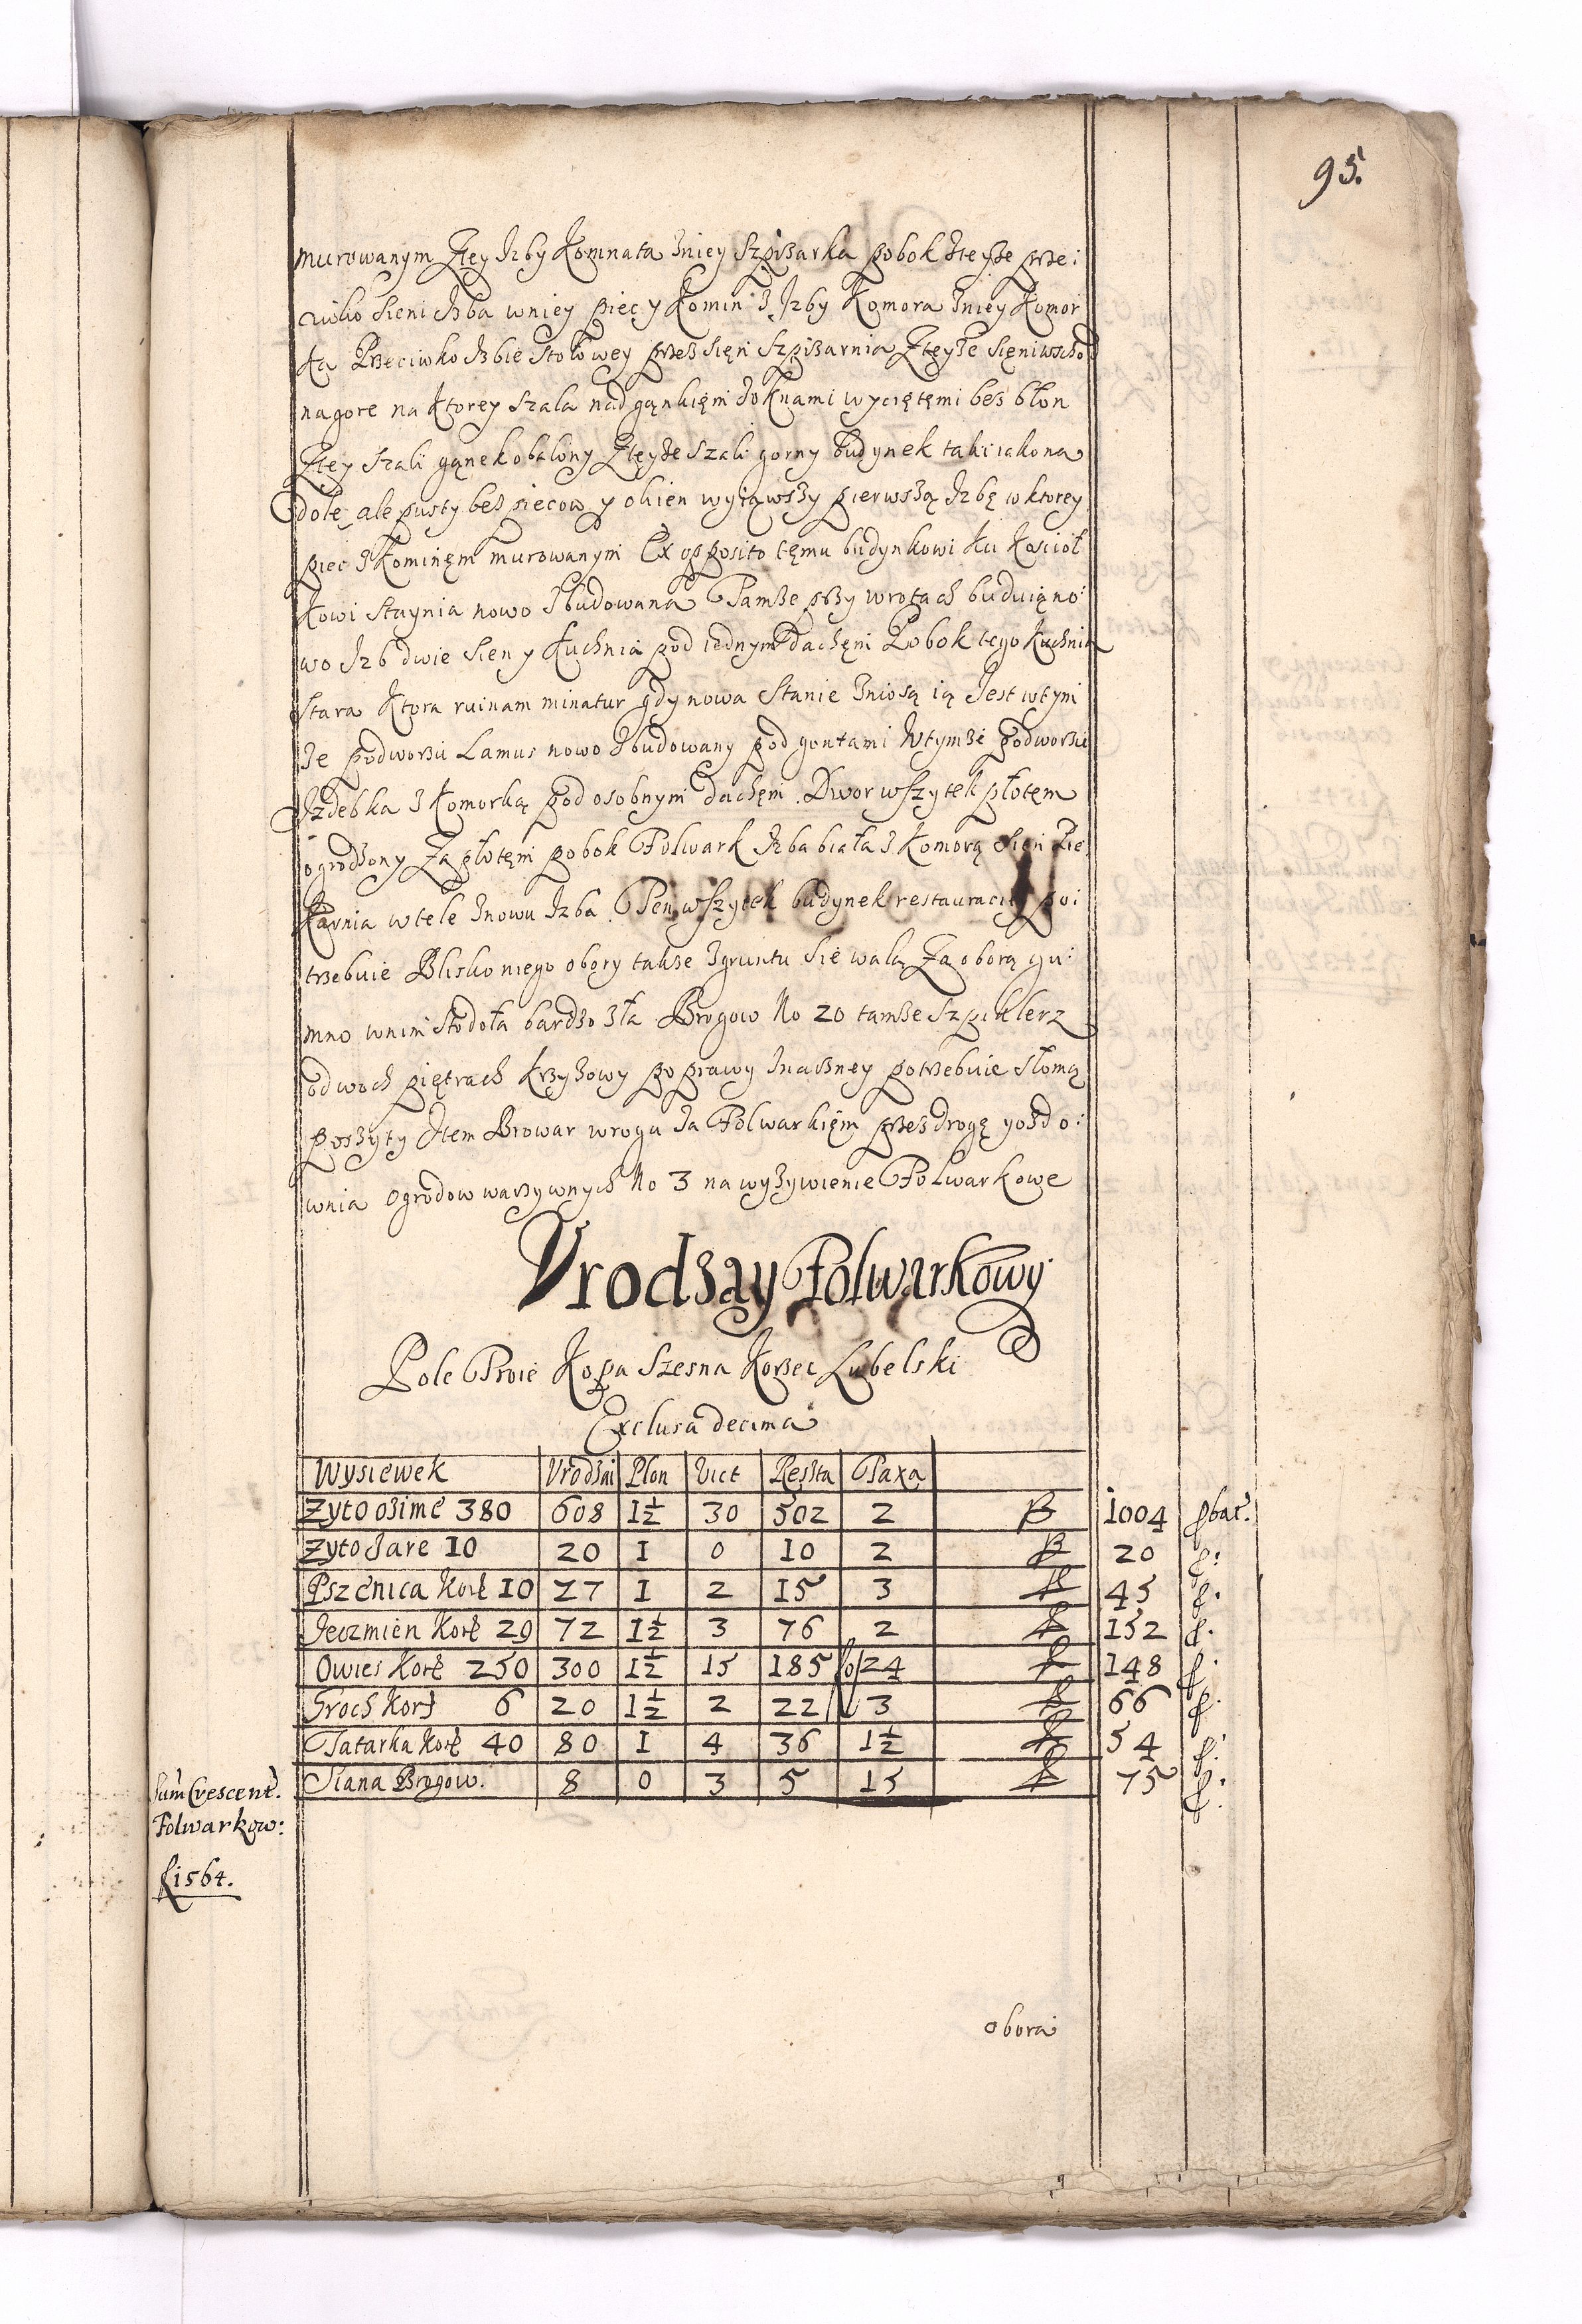 95.
murowanym Ztey Izby Komnata zniey Szpiżarka pobok zteyże prze:
ciwko sieni Izba wniey piec y Komin z Izby Komora zniey Komor
ka Przeciwko Izbie stołowey przez sięń Szpiżarnia Zteyże sięni wschod
nagorę na ktorey szala nad gąnkięm z oknami wyciętemi bez błon
Ztey szali gąnek obalony Zteyże szali gorny budynek taki iako na
dole, ale pusty bez piecow y okien wyiąwszy pierwszą Izbę w ktorey
piec z Kominęm murowanym Ex opposito tęmu budynkowi ku Kosciół
kowi staynia nowo zbudowana Tamże przy wrotach buduią no:
wo Izb dwie sien y Kuchnia pod iednym dachęm Pobok tego Kuchnia
stara ktora ruinam minatur gdy nowa stanie zniosą ią Jest wtym
ze podworzu Lamus nowo zbudowany pod gontami Wtymże podworzu
Izdebka z Komorką pod osobnym dachęm. Dwor wszytek płotęm
ogrodzony Za płotęm pobok Folwark Izba biała z Komorą Sien Pie
karnia wtele znowu Izba. Ten wszytek budynek restauraciey po:
trzebuie Blisko niego obory także zgruntu się walą Za oborą gu:
mno wnim stodoła bardzo zła Brogow No 20 tamże Szpiklerz
odwoch piętrach krzyżowy poprawy znaczney potrzebuie słomą
poszyty Item Browar wrogu za Folwarkięm przez drogę y ozdo:
wnia ogrodow warzywnych No 3 na wyżywienie Folwarkowe
Vrodzay Folwarkowy
Pole Troie Kopa Szesna Korzec Lubelski
Exclusa decima
Wysiewek Vrodzai Plon Vict Reszta Taxa
Zyto ozime 380 608 1½ 30 502 2 1004 obat.
Zyto Jare 10 20 1 0 10 2 20 f:
Pszenica Kore 10 27 1 2 15 3 45 f.
Jeczmien Kore 29 72 1½ 3 76 2 152 f.
Owies Kore 250 300 1½ 15 185 24 148 f.
Groch Kor 6 20 1½ 2 22 3 66 f.
Tatarka Kore 40 80 1 4 36 1½ 54 f:
Siana Brogow. 8 0 3 5 15 75 f:
Sum Crescent.
Folwarkow:
f 1564.
obora